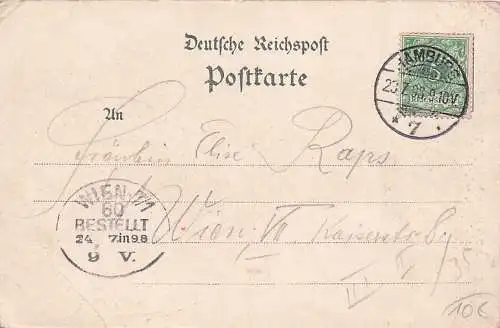 Deutsche Reichspost
Postkarte
HAMBURG
7
An
Fräulein Elise Raps
WIEN 7/1
60
BESTELLT
24 7 in 98
9 V.
Wien, VII Kaiserstr.
10€